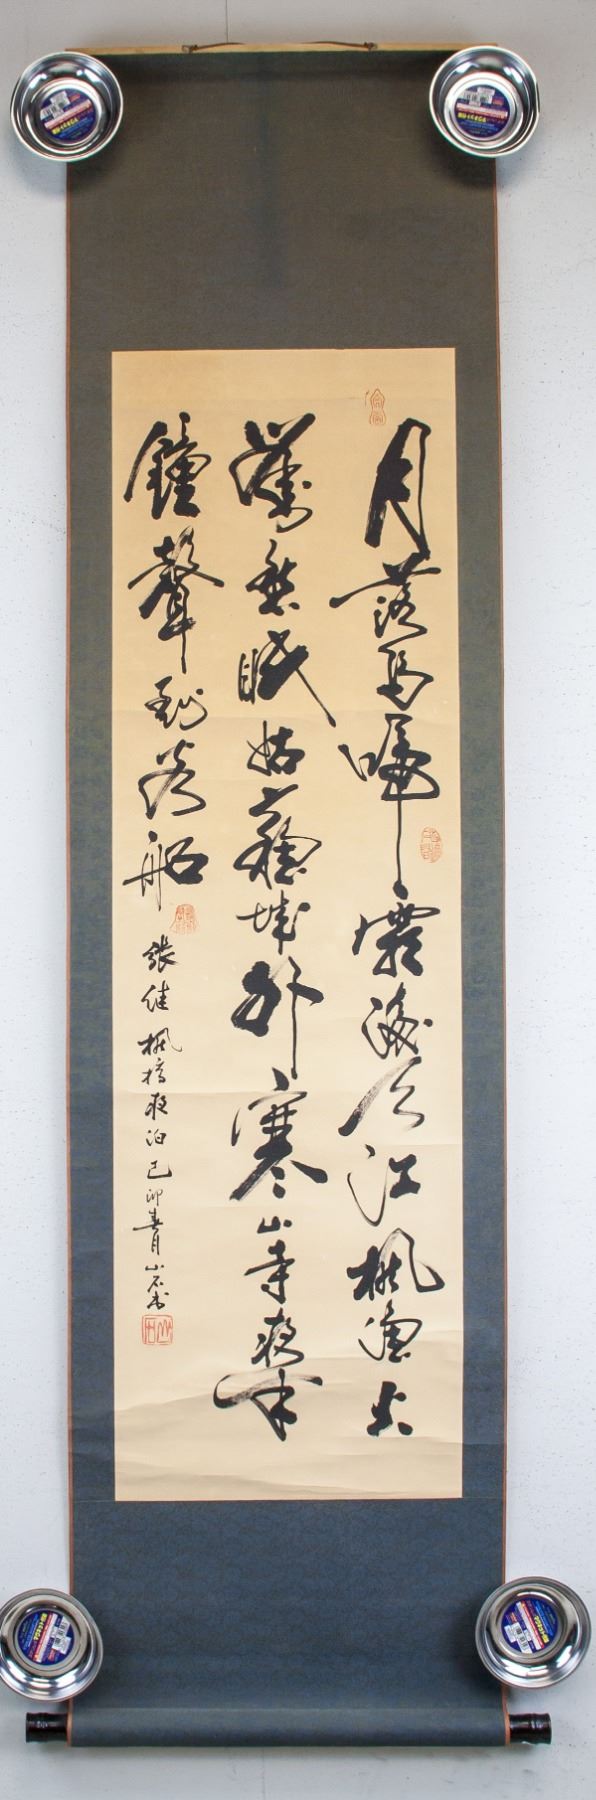 月落烏啼霜滿天江楓漁火
對愁眠姑蘇城外寒山寺夜半
鐘聲到客船
張継楓橋夜泊己卯春月山石书